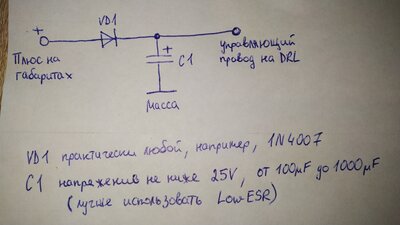 VD1
+
Плюс на
габаритах
+
C1
управляющий
провод на DRL
Масса
VD1 практически любой, например, 1N4007
C1 напряжение не ниже 25V, от 100μF до 1000μF
(лучше использовать Low-ESR)